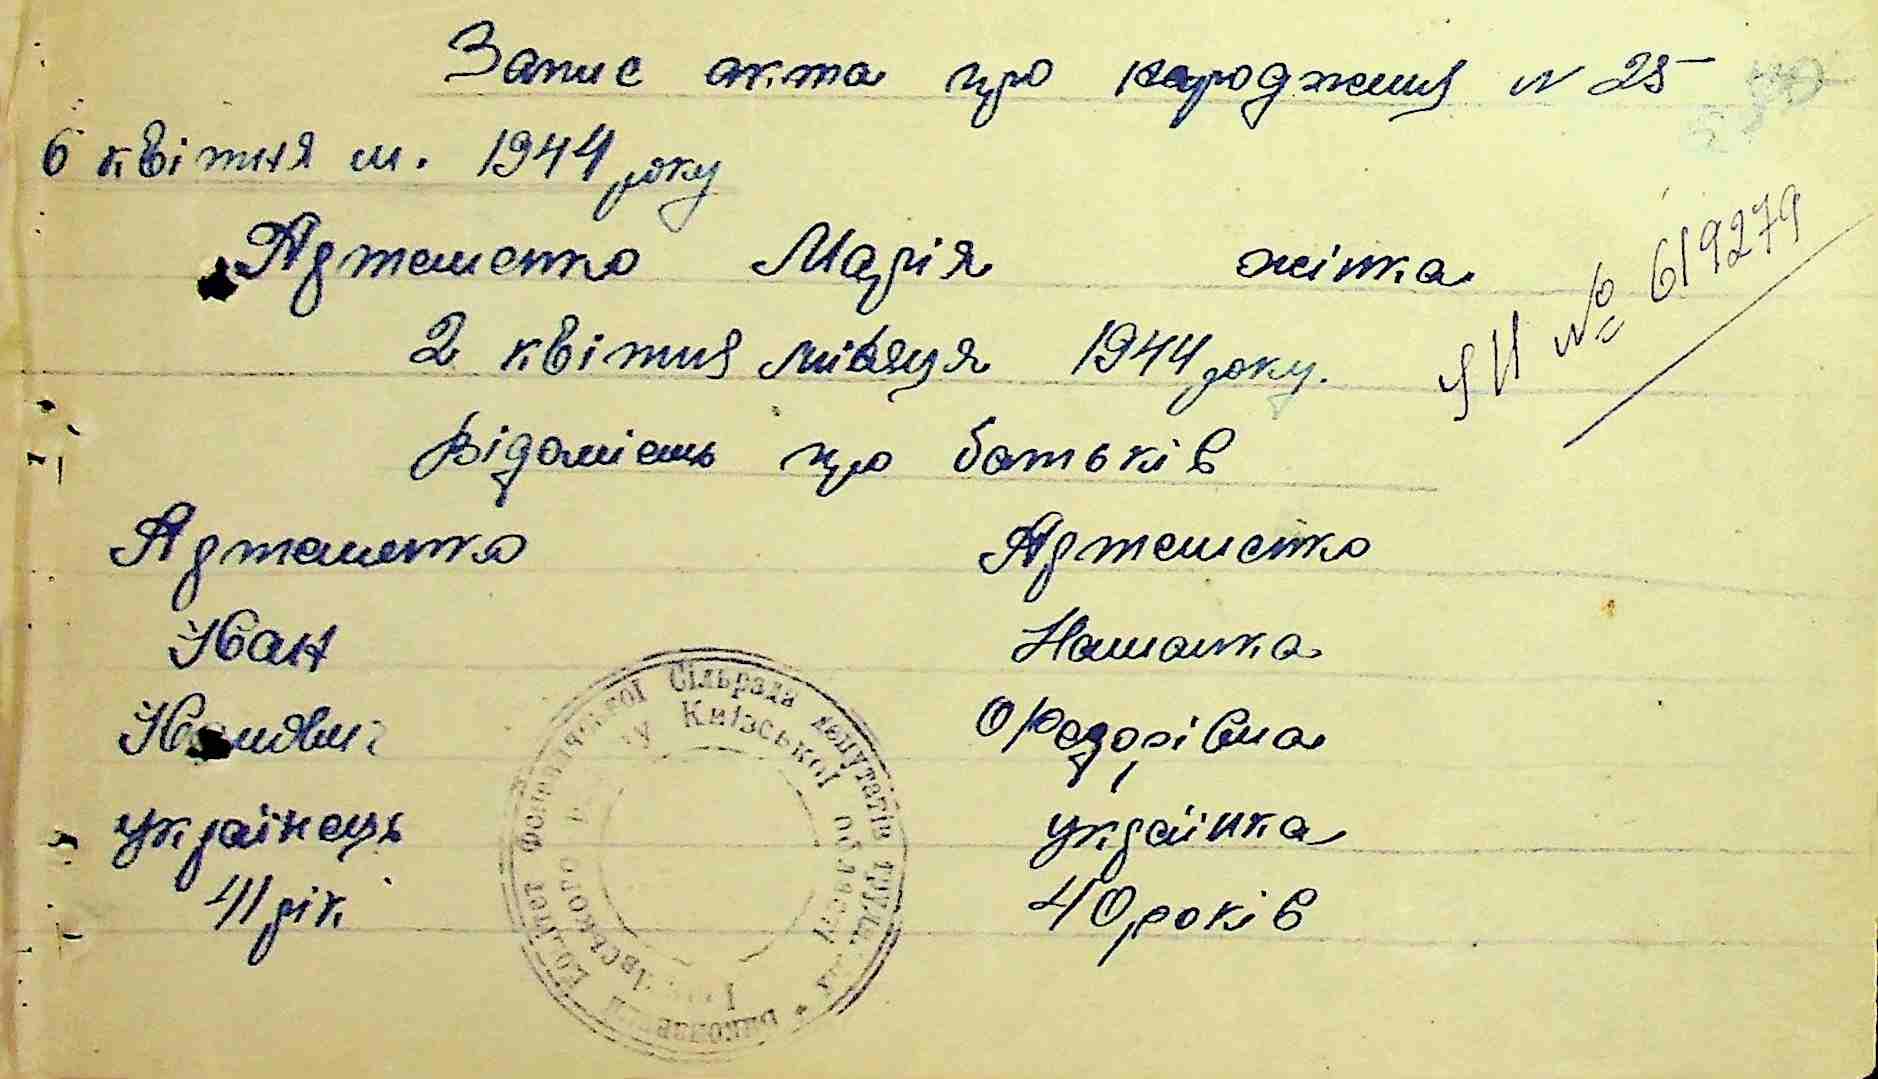 Запис акта про народження N 25
6 квітня м. 1944 року
Артеменко Марія жінка
ЯИ № 619279
2 квітня місяця 1944 року.
відомість про батьків
Артеменко Артеменко
Іван Наталка
Федорівна
українець українка
41 рік 40 років
Виконавчий Комітет Сільрада депутатів
Київської області